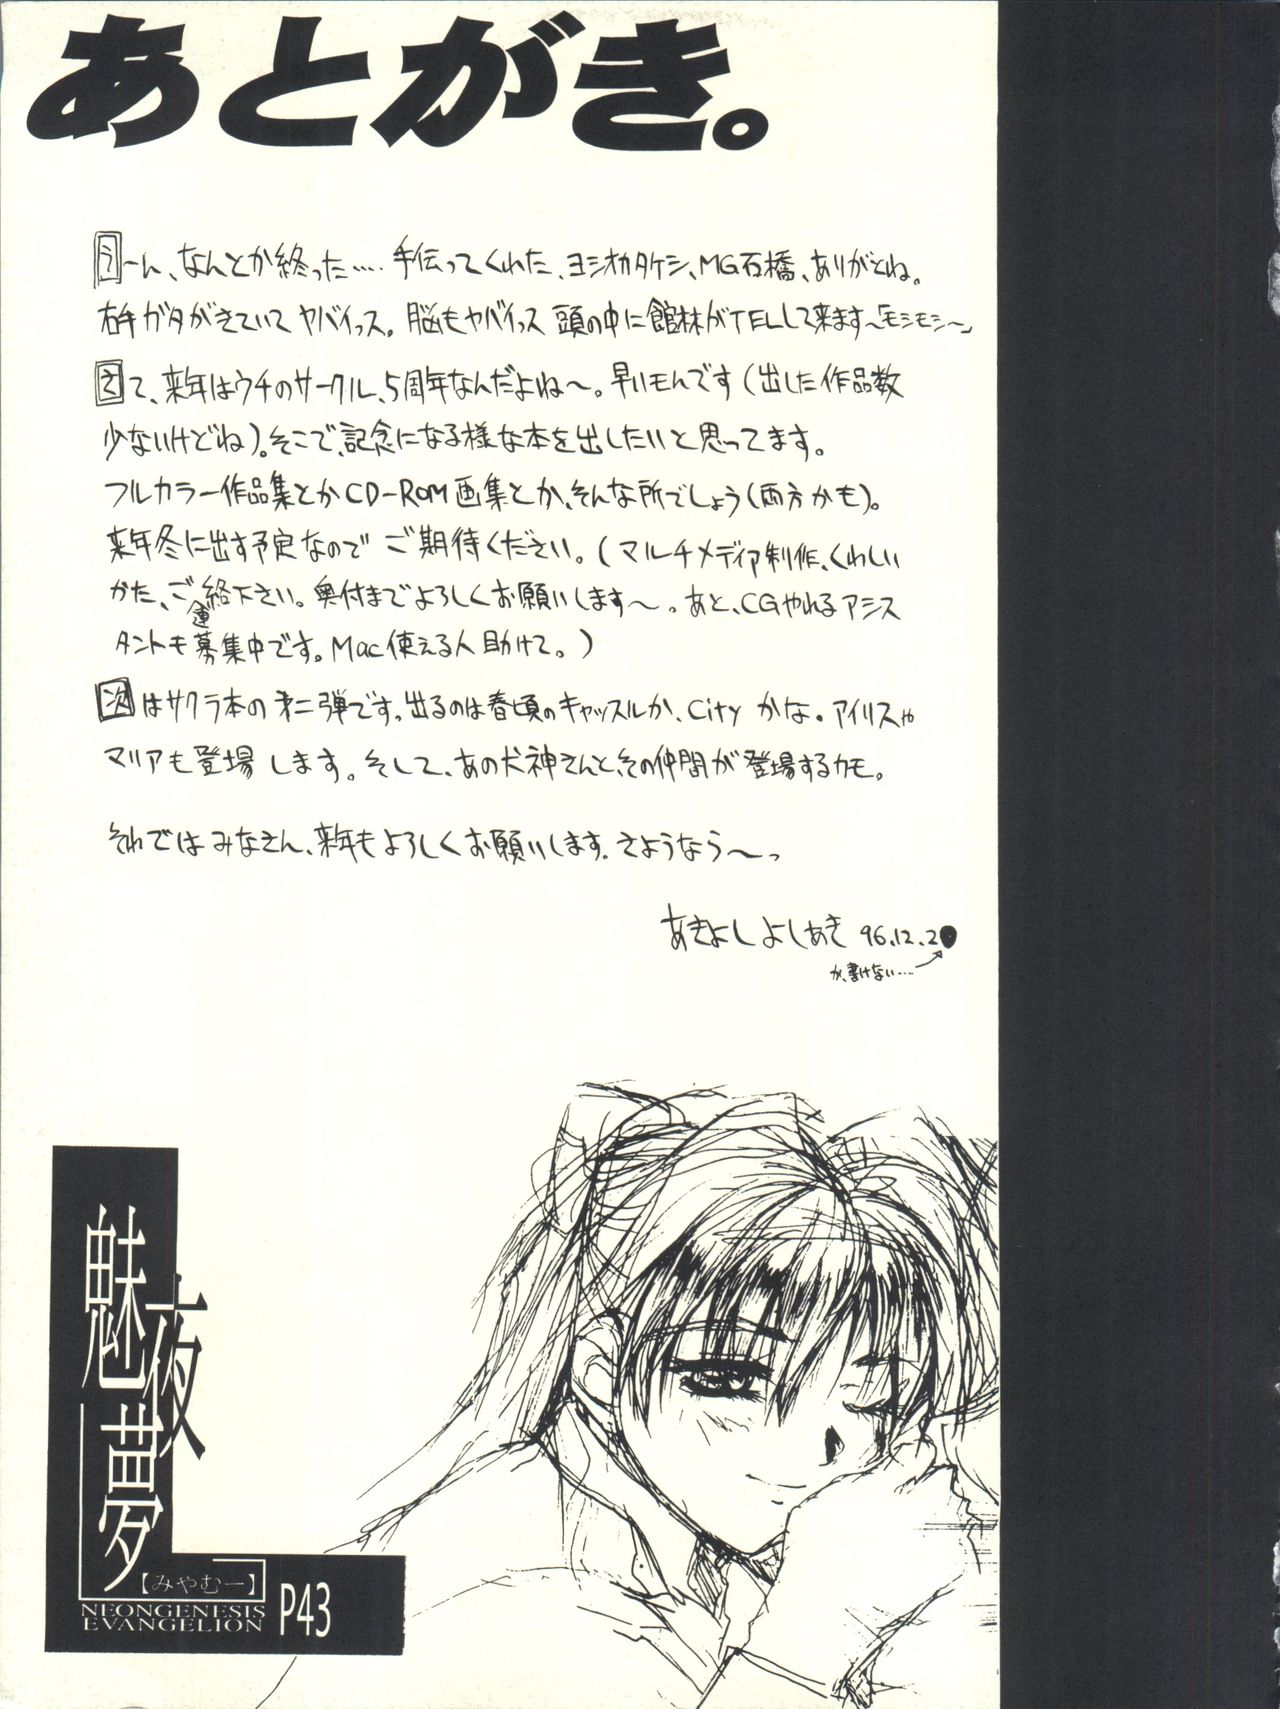 あとがき。
うーん、なんとか終った…. 手伝ってくれた、ヨシオカタケシ、MG石橋、ありがとね。
右手ガタがきていてヤバイっス。脳もヤバイっス 頭の中に館林がTELして来ます〜「モシモシ〜」
さて、来年はウチのサークル、5周年なんだよね〜。早いモんです(出した作品数
少ないけどね)。そこで、記念になる様な本を出したいと思ってます。
フルカラー作品集とかCD-ROM画集とか、そんな所でしょう(両方かも)。
来年冬に出す予定なので ご期待ください。(マルチメディア制作、くわしい
かた、ご連絡下さい。奥付までよろしくお願いします〜。あと、CGやれるアシス
タントも募集中です。Mac使える人助けて。)
次はサクラ本の第二弾です。出るのは春頃のキャッスルか、Cityかな。アイリスや
マリアも登場します。そして、あの犬神さんと、その仲間が登場するカモ。
それではみなさん、来年もよろしくお願いします。さようなら〜っ
あきよしよしあき 96.12.2
が、書けない….
魅夜夢
【みやむー】
NEONGENESIS
EVANGELION
P43